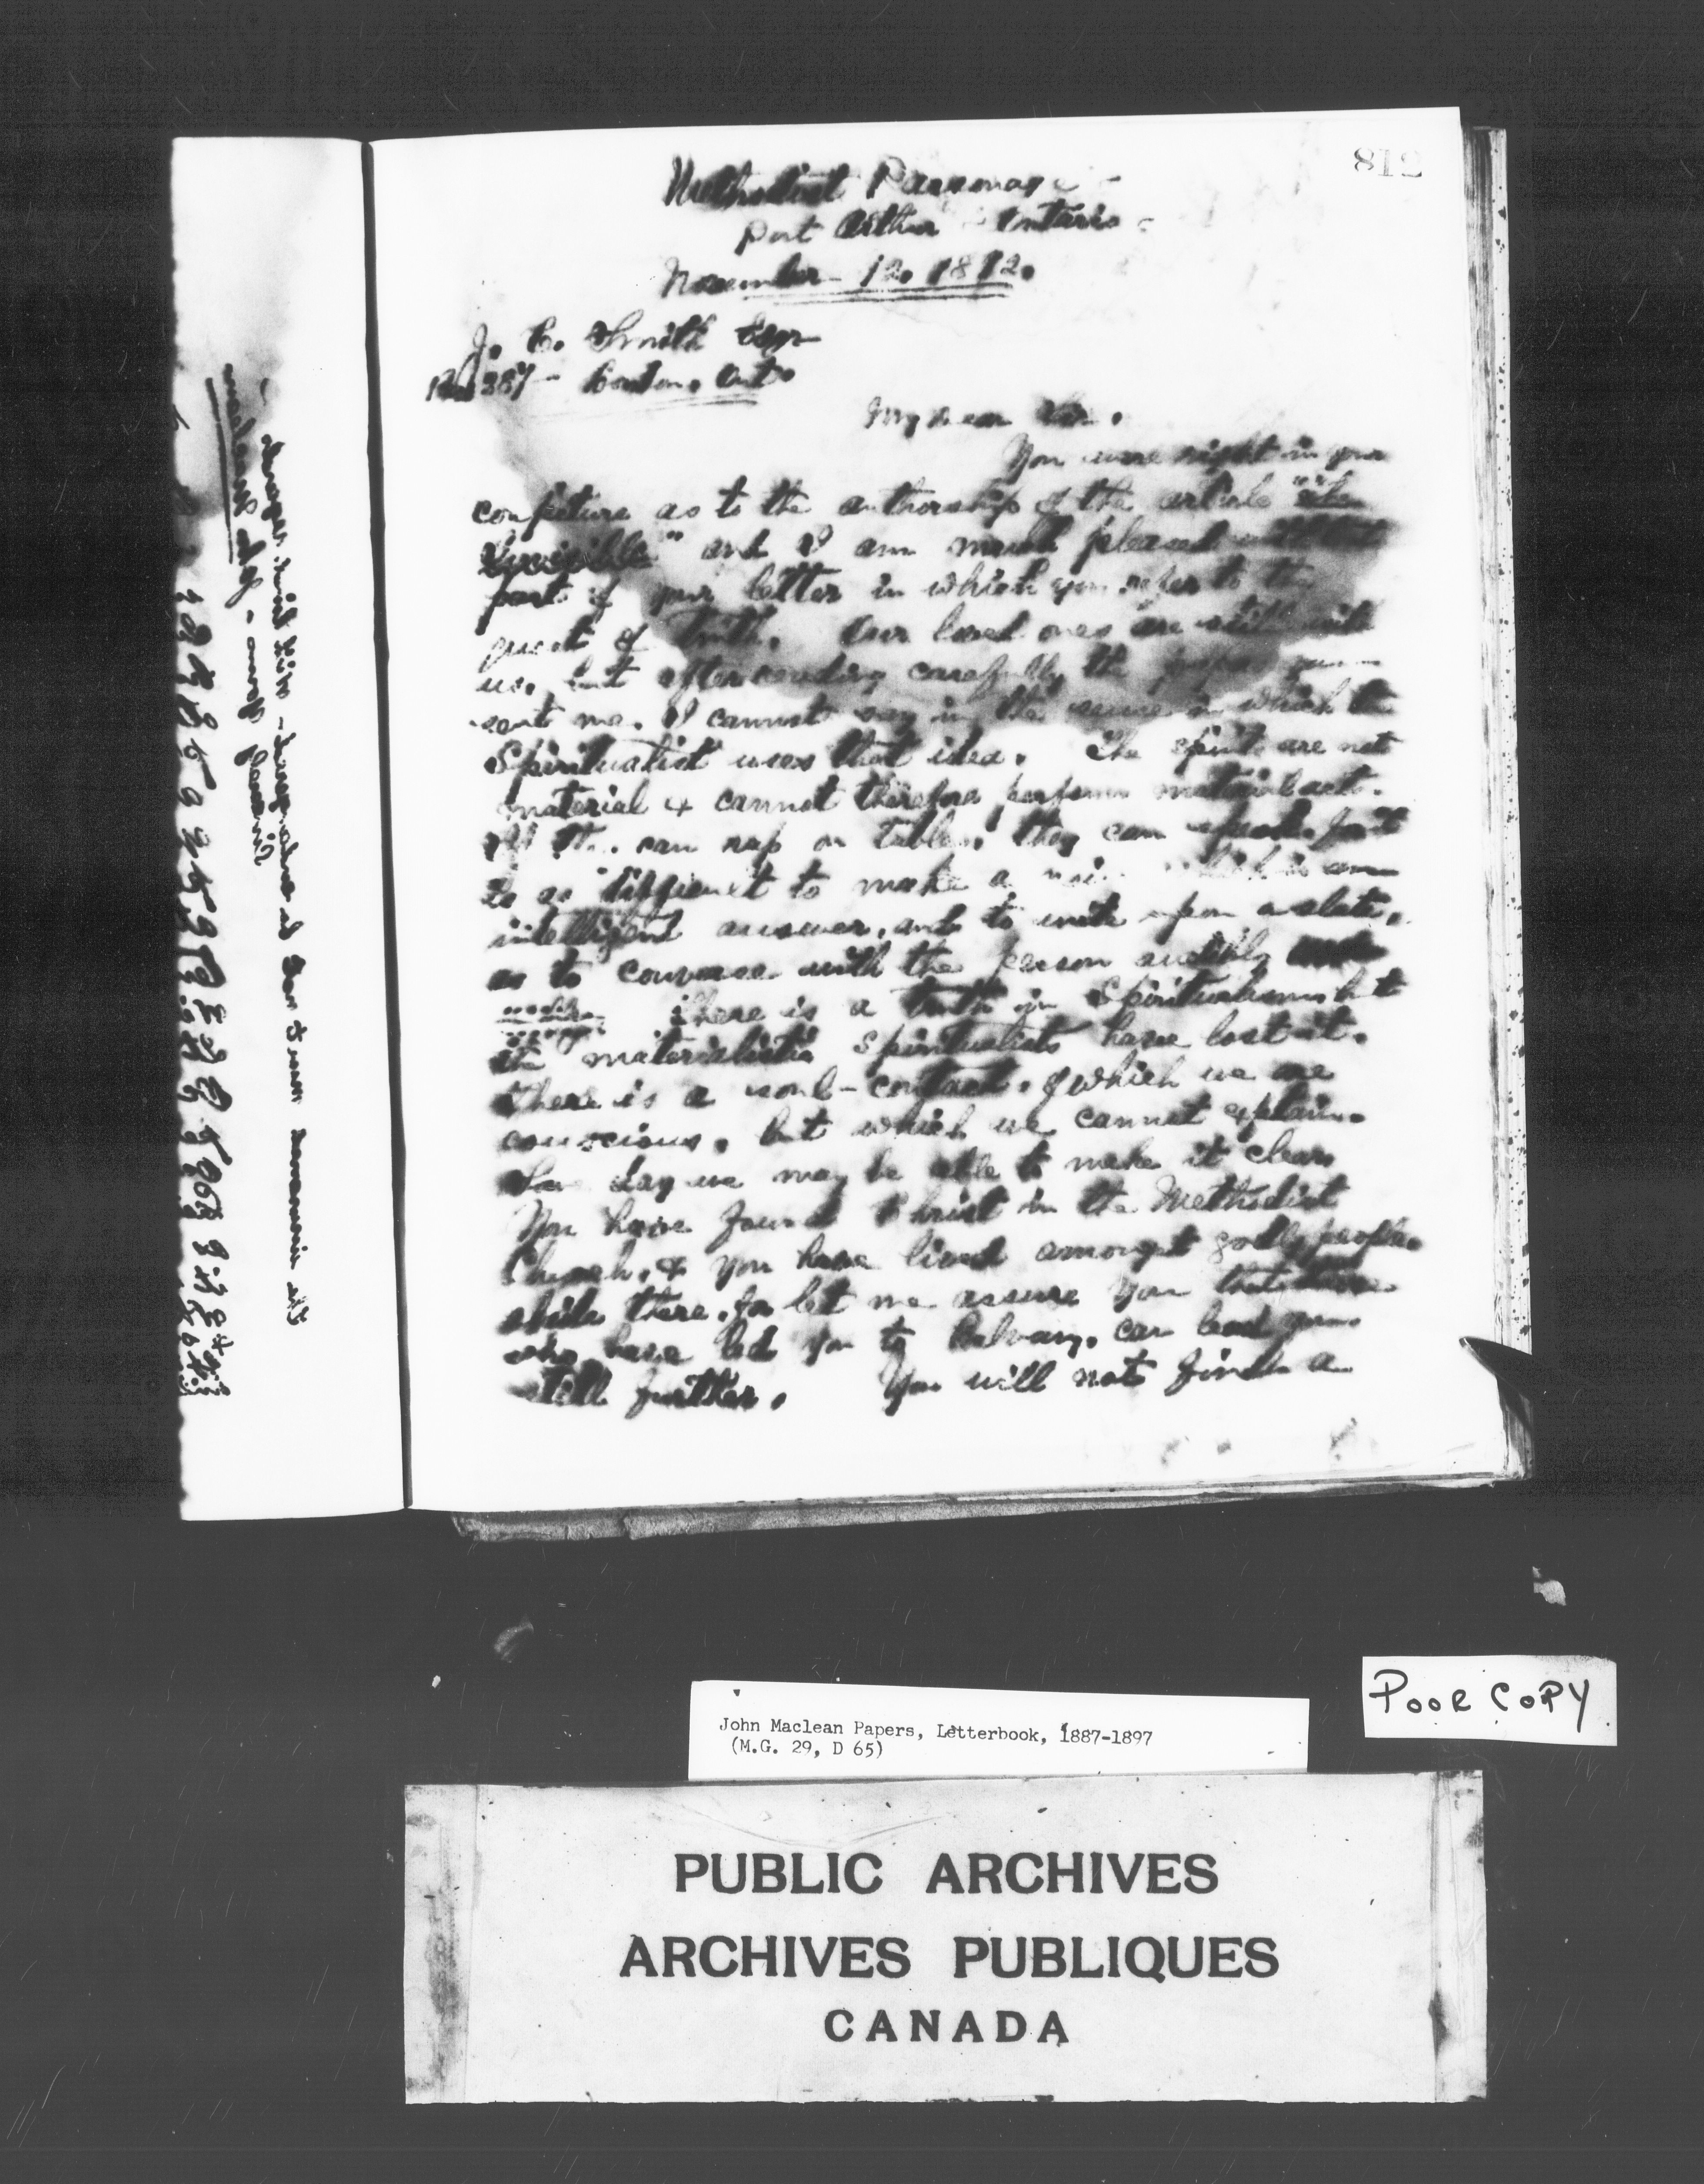 812
Methodist Parsonage
Port Arthur Ontario
November 12. 1892.
J. C. Smith Esqr
Box 387 - London, Ont.
My Dear Sir.
You were right in your
conjecture as to the authorship of the article "The
Invisible" and I am much pleased with that
part of your letter in which you refer to the
quest of Truth. Our loved ones are still with
us, but after reading carefully the paper you
sent me. I cannot say in the sense in which the
Spiritualist uses that idea. The spirits are not
material & cannot therefore perform material acts.
If they can rap on tables, they can speak for it
is as difficult to make a noise which is an
intelligent answer, and to write upon a slate,
as to converse with the person audibly
There is a truth in Spiritualism but
the materialistic spiritualists have lost it.
There is a soul-contact, of which we are
conscious, but which we cannot explain.
Some day we may be able to make it clear
You have found Christ in the Methodist
Church, & you have lived amongst godly people.
abide there, for let me assure you that those
who have led you to Calvary, can lead you
still further. You will not find a
The increased must not be endangered - with kind regards
Sincerely Yours - John Maclean
John Maclean Papers, Letterbook, 1887-1897
(M.G. 29, D 65)
POOR COPY
PUBLIC ARCHIVES
ARCHIVES PUBLIQUES
CANADA